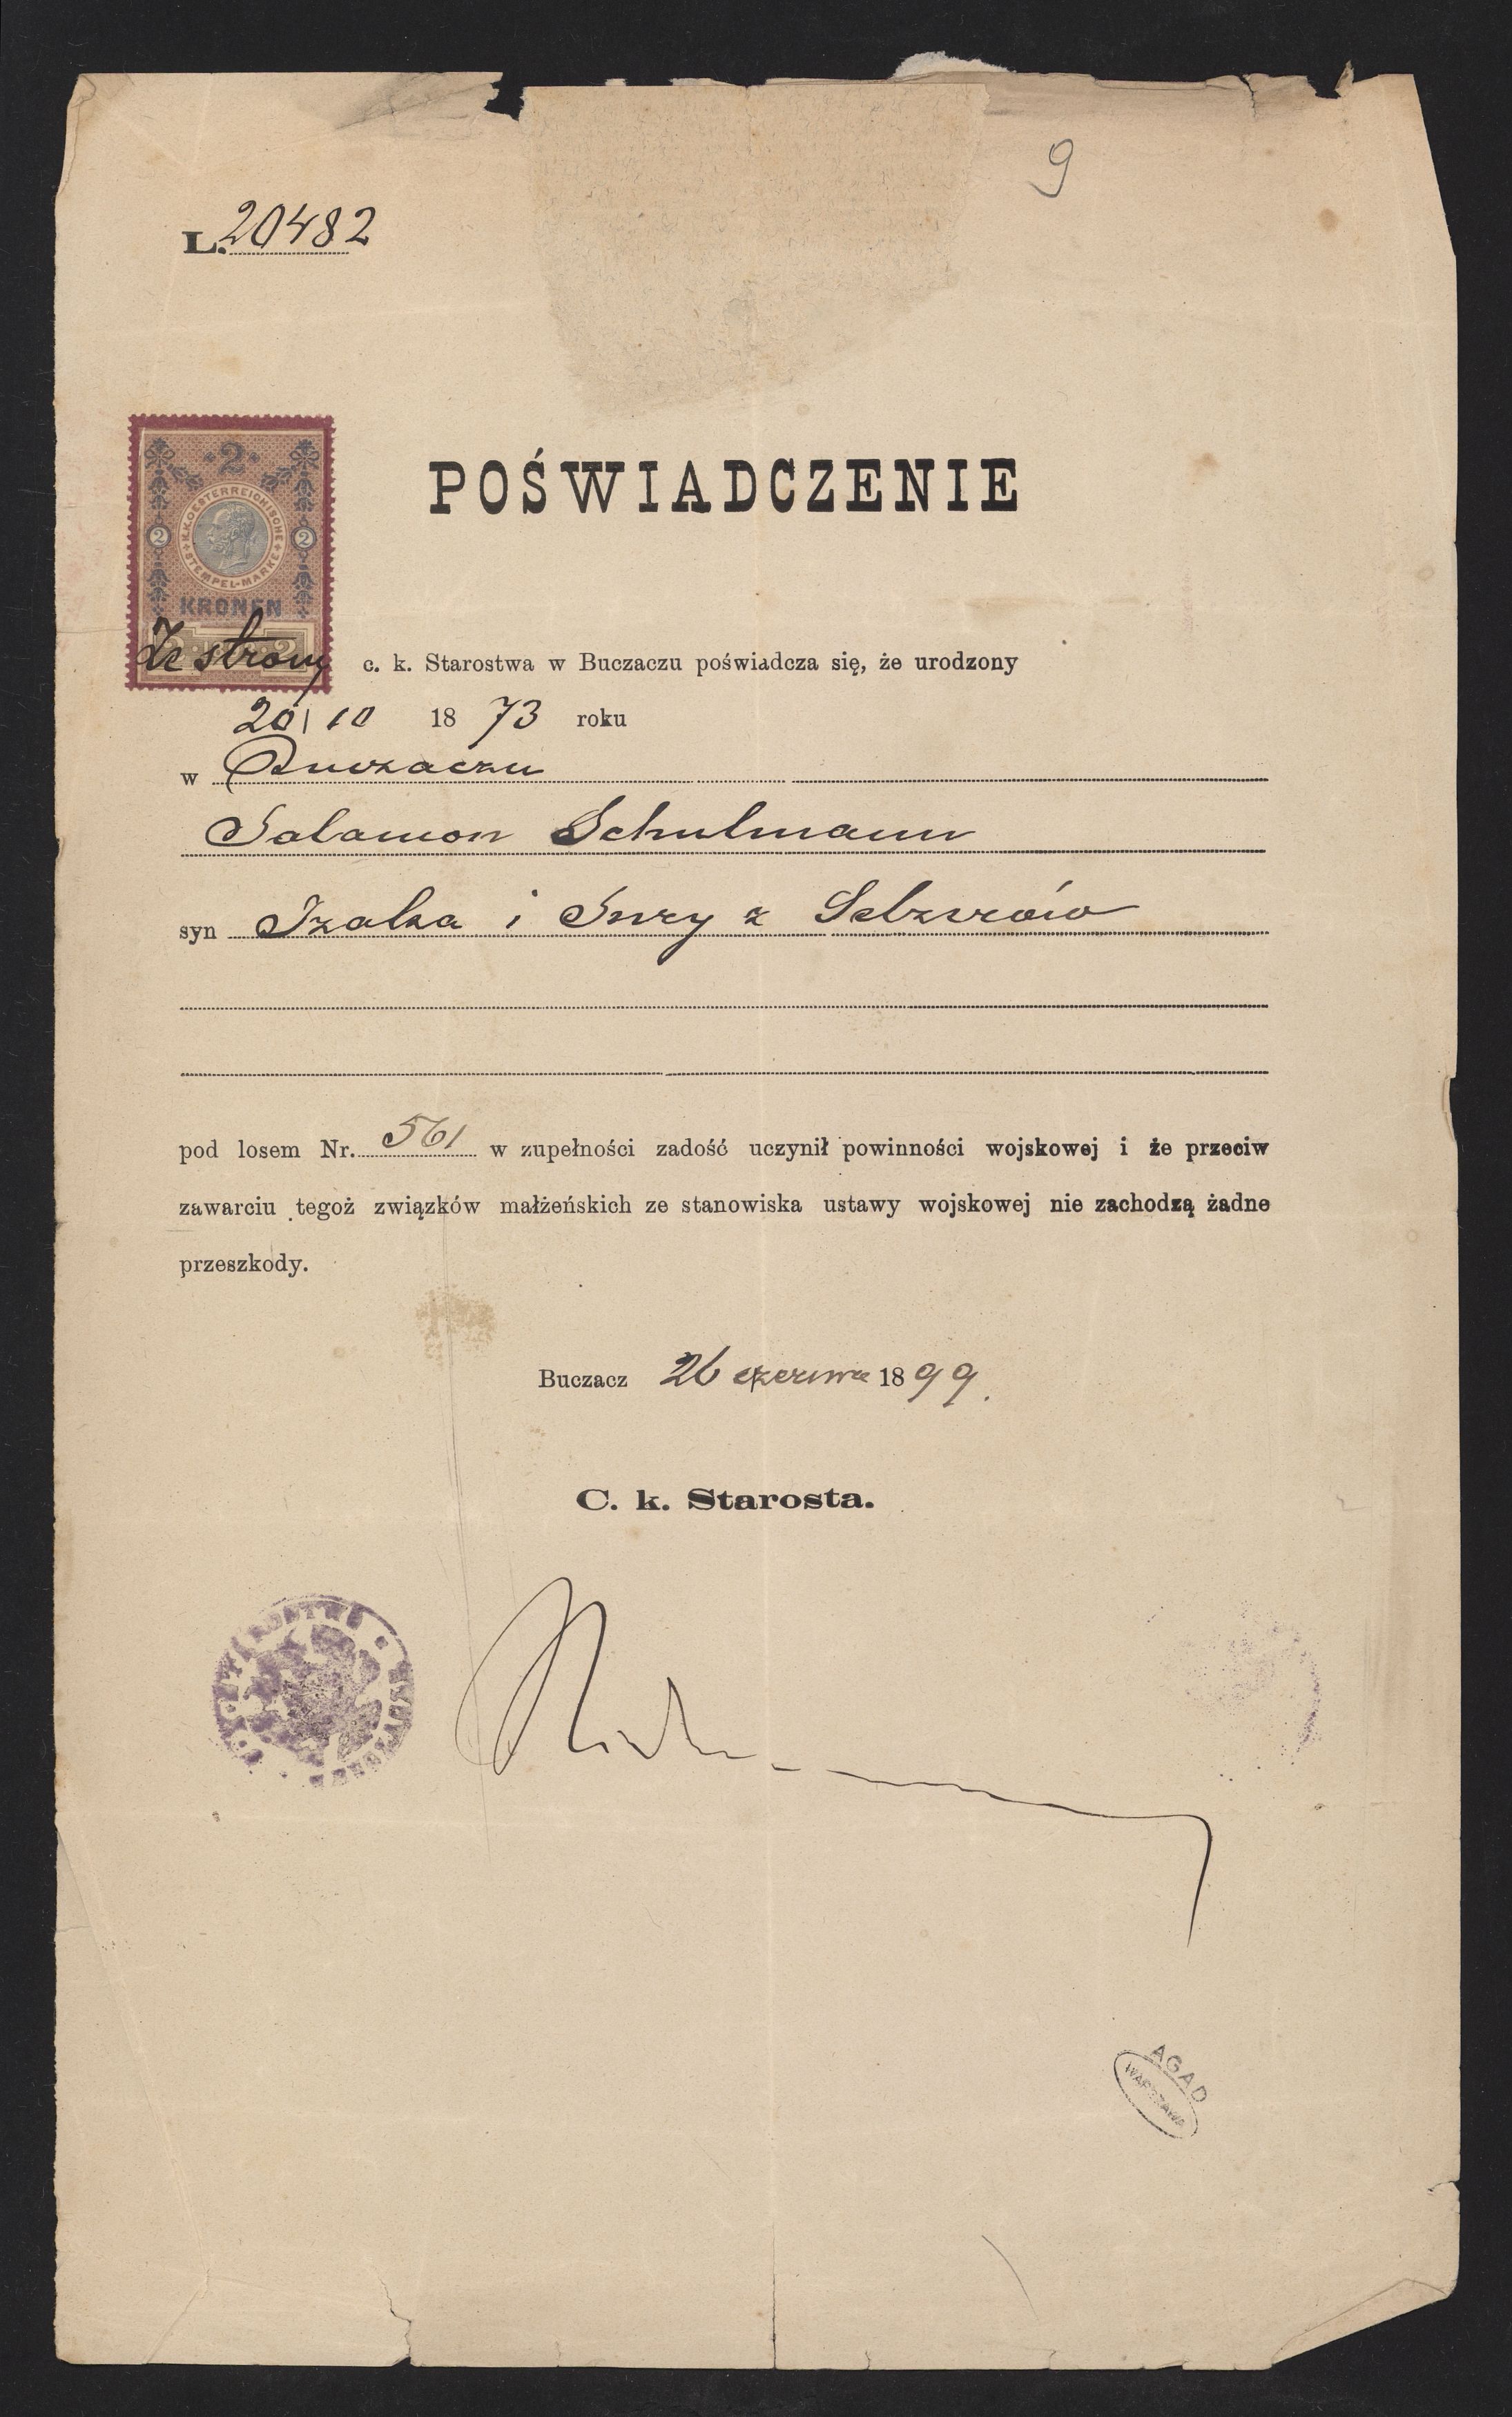 9
L. 20482
2
K.K. OESTERREICHISCHE STEMPEL-MARKE
2 2
KRONEN
POŚWIADCZENIE
Ze strony c. k. Starostwa w Buczaczu poświadcza się, że urodzony
20/10 1873 roku
w Buczaczu
Salamon Schulmann
syn Izaka i Sury z
pod losem Nr. 561 w zupełności zadość uczynił powinności wojskowej i że przeciw
zawarciu tegoż związków małżeńskich ze stanowiska ustawy wojskowej nie zachodzą żadne
przeszkody.
Buczacz 26 czerwca 1899.
C. k. Starosta.
AGAD
WARSZAWA